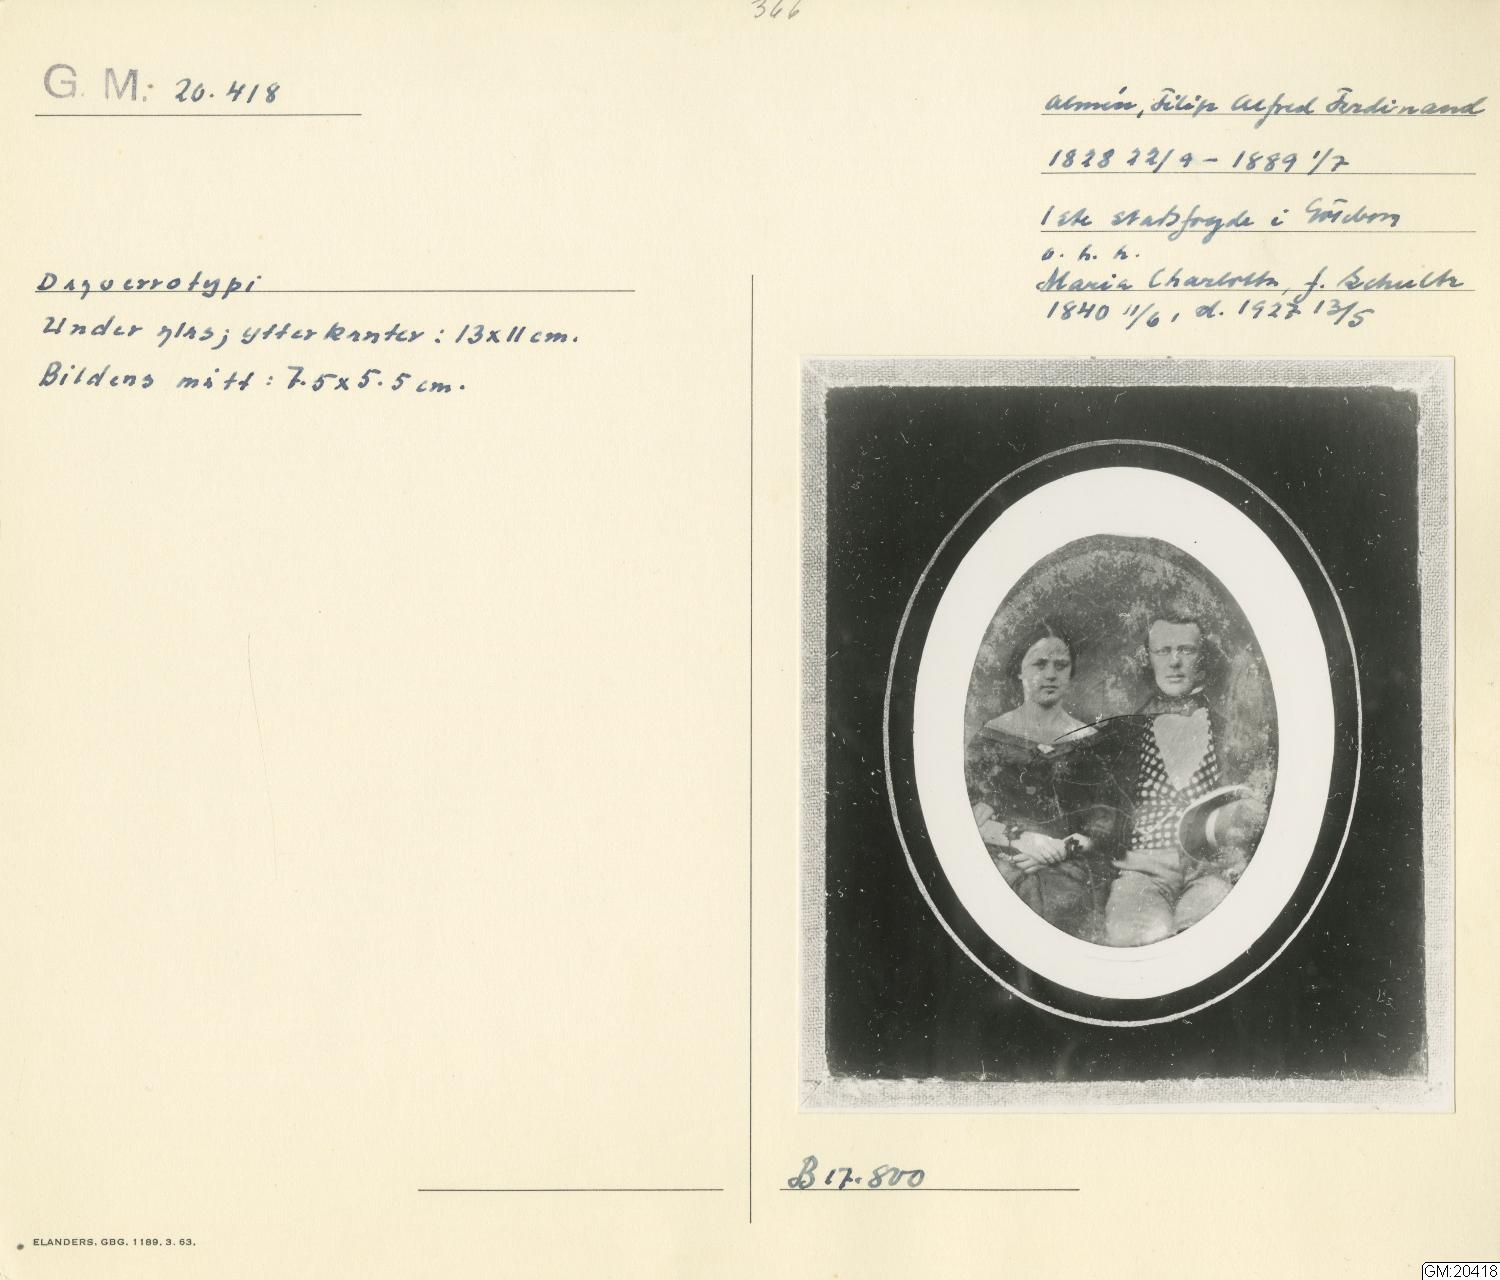 366
G. M.: 20.418
Almén, Filip Alfred Ferdinand
1828 22/9 – 1889 1/7
1ste stadsfogde i Göteborg
o. h. h.
Maria Charlotta, f. Schultz
1840 11/6, d. 1927 13/5
Daguerrotypi
Under glas; ytterkanter: 13x11 cm.
Bildens mått: 7.5x5.5 cm.
B 17.800
ELANDERS, GBG. 1189. 3. 63.
GM:20418